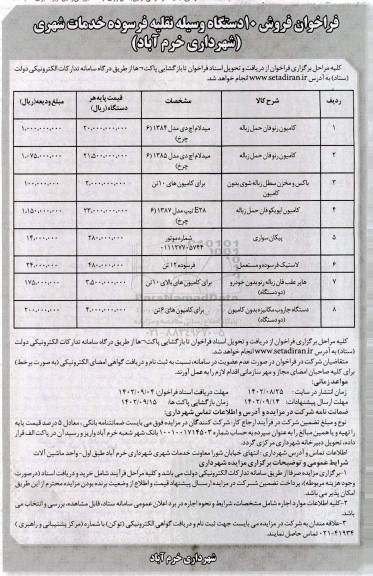 فراخوان فروش ۱۰ دستگاه وسیله نقلیه فرسوده خدمات شهری
(شهرداری خرم آباد)
کلیه مراحل برگزاری فراخوان از دریافت و تحویل اسناد فراخوان تا بازگشایی پاکت¬ها از طریق درگاه سامانه تدارکات الکترونیکی دولت
(ستاد) به آدرس www.setadiran.ir انجام خواهد شد.
ردیف شرح کالا مشخصات قیمت پایه هر دستگاه (ریال) مبلغ ودیعه (ریال)
۱ کامیون رنو فان حمل زباله میدلام اچ دی مدل ۱۳۸۴ (۶ چرخ) ۲۰.۰۰۰.۰۰۰.۰۰۰ ۱.۰۰۰.۰۰۰.۰۰۰
۲ کامیون رنو فان حمل زباله میدلام اچ دی مدل ۱۳۸۵ (۶ چرخ) ۲۱.۵۰۰.۰۰۰.۰۰۰ ۱.۰۷۵.۰۰۰.۰۰۰
۳ باکس و مخزن سطل زباله شوی بدون کامیون برای کامیون های ۱۰ تن ۲.۰۰۰.۰۰۰.۰۰۰ ۱۰۰.۰۰۰.۰۰۰
۴ کامیون ایویکو فان حمل زباله E۲۸ تیپ مدل ۱۳۸۷ (۶ چرخ) ۲۳.۰۰۰.۰۰۰.۰۰۰ ۱.۱۵۰.۰۰۰.۰۰۰
۵ پیکان سواری شماره موتور ۰۱۱۱۲۷۰۵۷۴۴ ۲۸۰.۰۰۰.۰۰۰ ۱۴.۰۰۰.۰۰۰
۶ لاستیک فرسوده و مستعمل فرسوده ۱۲ تن ۴۸۰.۰۰۰.۰۰۰ ۲۴.۰۰۰.۰۰۰
۷ هایر عقب فان زباله رنو بدون خودرو (دو دستگاه) برای کامیون های بالای ۱۰ تن ۳.۵۰۰.۰۰۰.۰۰۰ ۱۷۵.۰۰۰.۰۰۰
۸ دستگاه جاروب مکانیزه بدون کامیون (دو دستگاه) برای کامیون های ۶ تن ۴.۰۰۰.۰۰۰.۰۰۰ ۲۰۰.۰۰۰.۰۰۰
کلیه مراحل برگزاری فراخوان از دریافت و تحویل اسناد فراخوان تا بازگشایی پاکت¬ها از طریق درگاه سامانه تدارکات الکترونیکی دولت
(ستاد) به آدرس www.setadiran.ir انجام خواهد شد.
متقاضیان شرکت در فراخوان در صورت عدم عضویت در سامانه، نسبت به ثبت نام و دریافت گواهی امضای الکترونیکی (به صورت برخط)
برای کلیه صاحبان امضای مجاز و مهر سازمانی اقدام لازم را به عمل آورند.
مواعد زمانی:
زمان انتشار در سایت: ۱۴۰۲/۰۸/۲۵ مهلت دریافت اسناد فراخوان: ۱۴۰۲/۰۹/۰۴
مهلت ارسال پیشنهادات: ۱۴۰۲/۰۹/۱۴ زمان بازگشایی پاکت ها: ۱۴۰۲/۰۹/۱۵
ضمانت نامه شرکت در مزایده و آدرس و اطلاعات تماس شهرداری:
نوع و مبلغ تضمین شرکت در فرآیند ارجاع کار: شرکت کنندگان در مزایده فوق می بایست ضمانتنامه بانکی، معادل ۵ درصد قیمت پایه
را تهیه و یا همین مبالغ را به عنوان سپرده به حساب شماره ۱۰۰۱۰۰۱۷۱۴۵۰۳ بانک شهر شعبه خرم آباد واریز و رسید آن در پاکت الف قرار
داده، تحویل دبیرخانه شهرداری مرکزی گردد.
اطلاعات تماس و آدرس شهرداری: انتهای خیابان شورا معاونت خدمات شهری شهرداری خرم آباد طبق اول- واحد ماشین آلات
شرایط عمومی و توضیحات برگزاری مزایده شهرداری
۱-برگزاری مزایده صرفا از طریق سامانه تدارکات الکترونیکی دولت می باشد و کلیه مراحل فرآیند شامل خرید و دریافت اسناد (در صورت
وجود هزینه مربوطه)، پرداخت تضمین شرکت در مزایده، ارسال پیشنهاد قیمت و اطلاع از وضعیت برنده بودن مزایده محترم از این طریق
امکان پذیر می باشد.
۲-کلیه اطلاعات موارد اجاره شامل مشخصات، شرایط و نحوه اجاره در برد اعلان عمومی سامانه ستاد، قابل مشاهده، بررسی و انتخاب می
باشد.
۳-علاقه مندان به شرکت در مزایده می بایست جهت ثبت نام و دریافت گواهی الکترونیکی (توکن) با شماره (مرکز پشتیبانی و راهبری)
۰۲۱-۴۱۹۳۴ تماس حاصل نمایند.
شهرداری خرم آباد